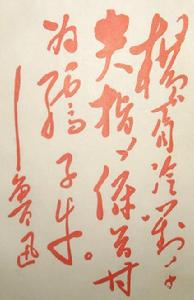 横眉冷对千
夫指，俯首甘
为孺子牛。
——鲁迅